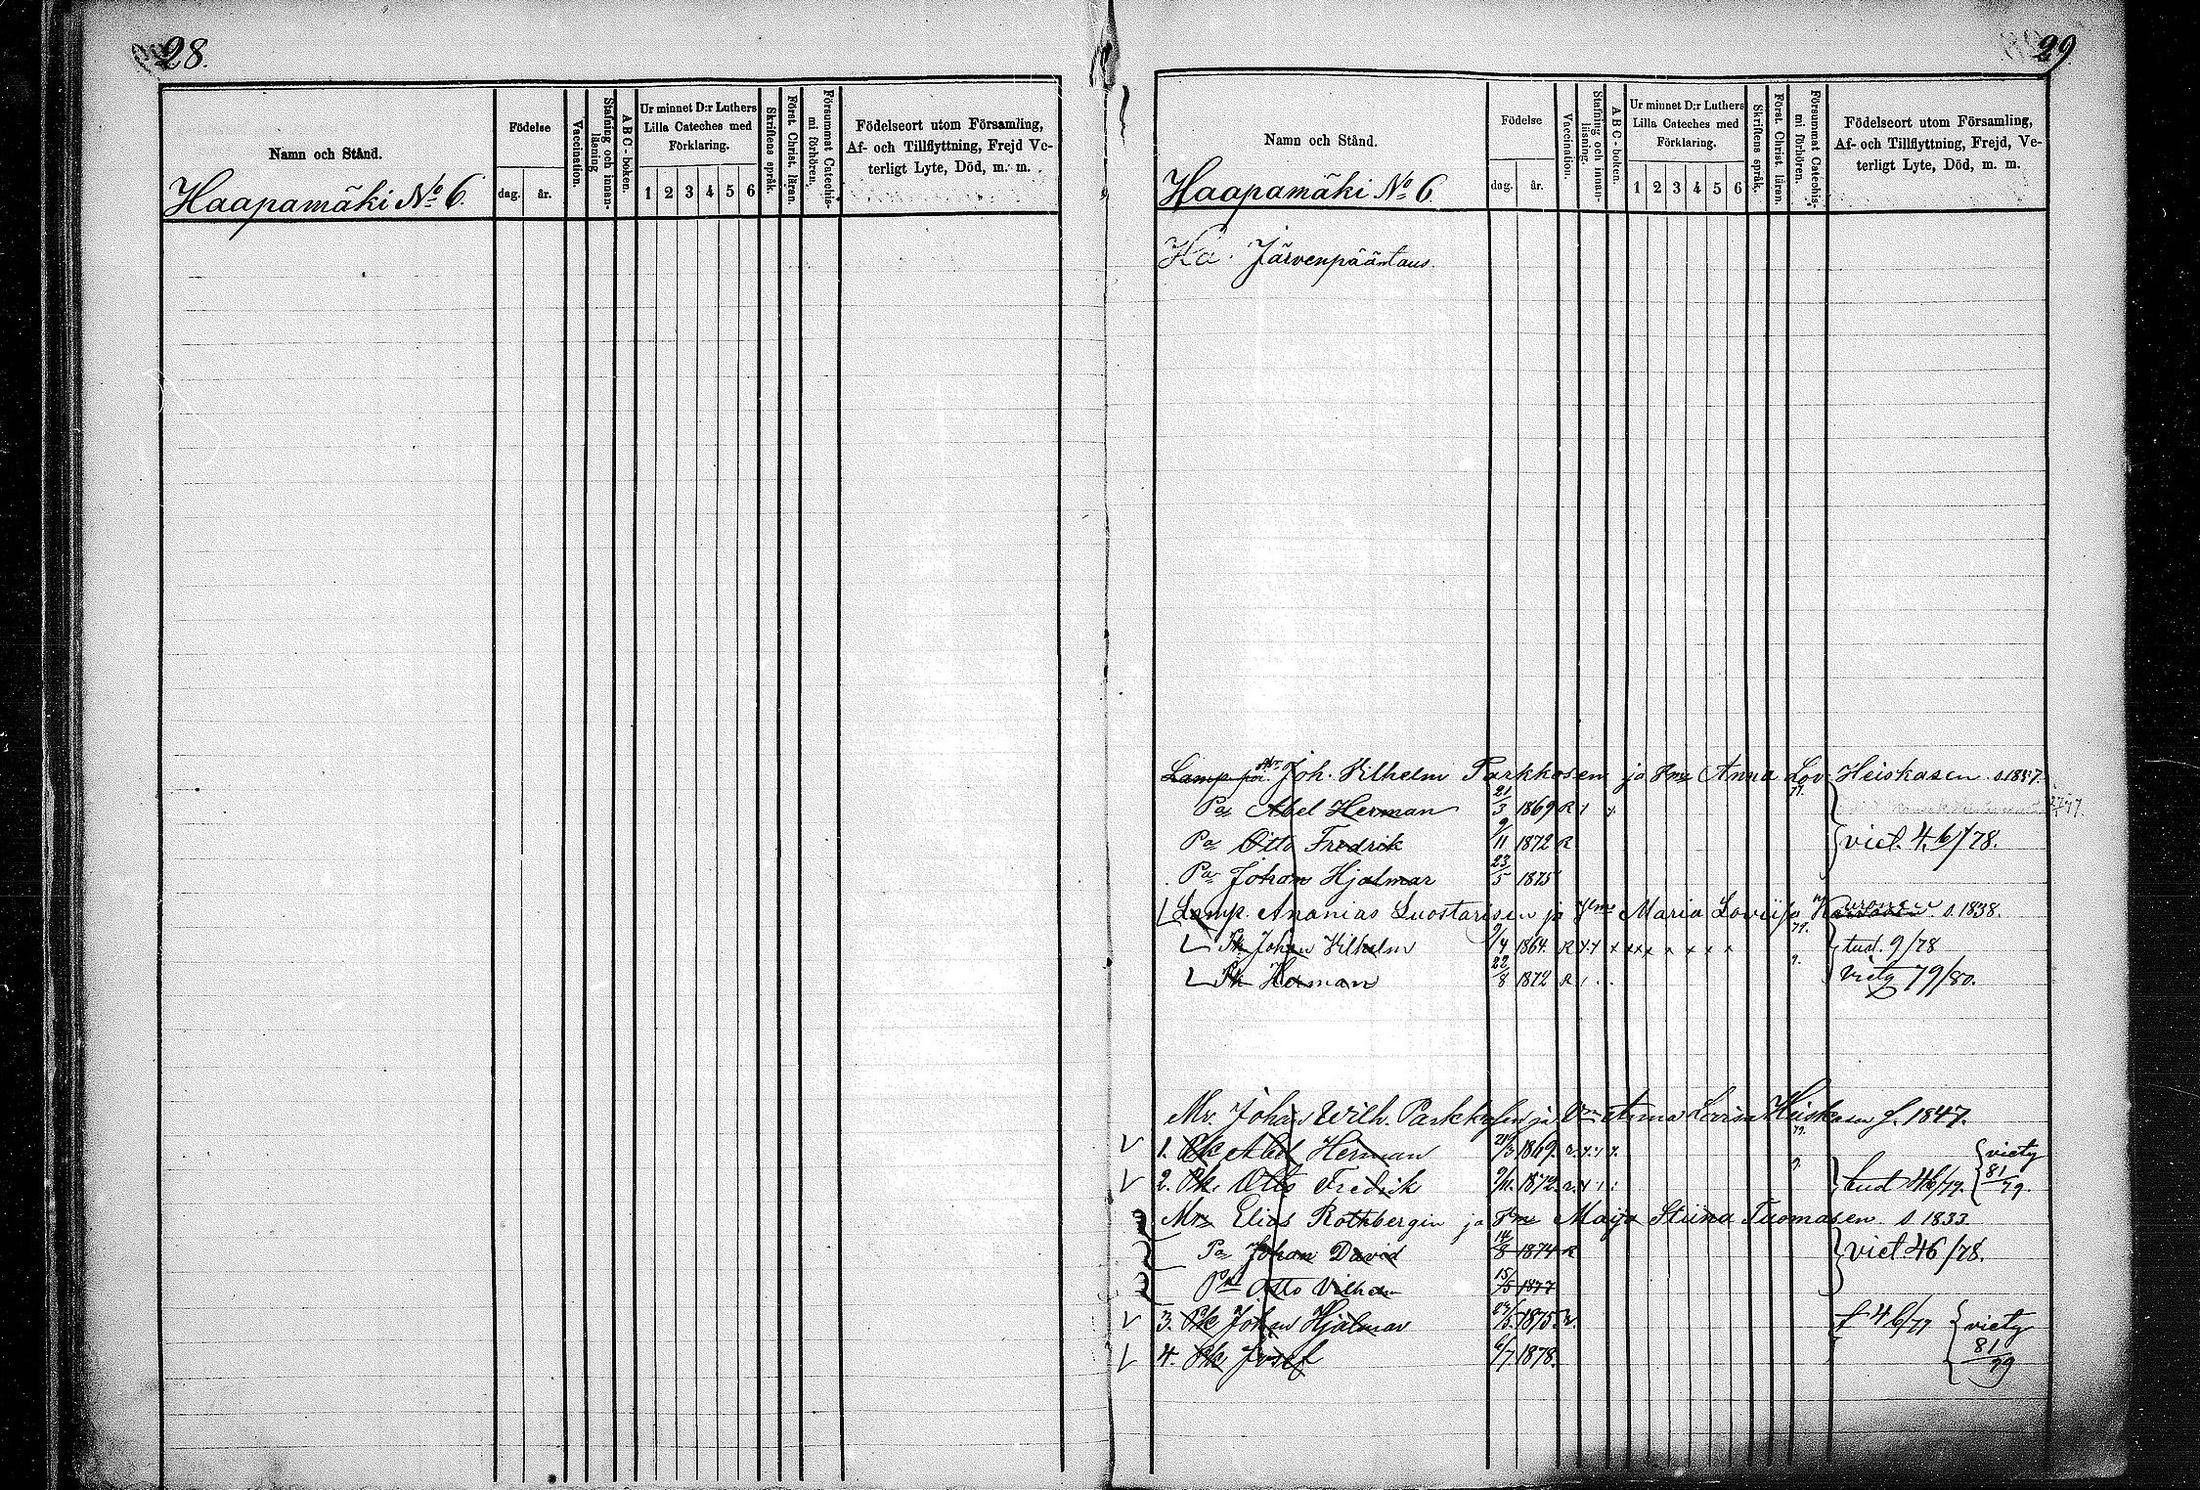 28.
Namn och Stånd.
Haapamäki No 6.
Födelse
dag. år.
Vaccination.
Stafning och innan-läsning
ABC-boken.
Ur minnet D:r Luthers
Lilla Cateches med
Förklaring.
1 2 3 4 5 6
Skriftens språk.
Först. Christ. läran.
Försummat Catechis-mi förhören.
Födelseort utom Församling,
Af- och Tillflyttning, Frejd Ve-
terligt Lyte, Död, m. m.
29
Namn och Stånd.
Haapamäki No 6.
Födelse
dag. år.
Vaccination.
Stafning och innan-läsning.
ABC-boken.
Ur minnet D:r Luthers
Lilla Cateches med
Förklaring.
1 2 3 4 5 6
Skriftens språk.
Först. Christ. läran.
Försummat Catechis-mi förhören.
Födelseort utom Församling,
Af- och Tillflyttning, Frejd, Ve-
terligt Lyte, Död, m. m.
Järvenpääntaus.
Lamp. Joh. Vilhelm Parkkosen ja Anna Lov. Heiskasen
Pa Abel Herman 21/3 1869 R
Pa Otto Fredrik 9/11 1872 R viet. 46/78.
Pa Johan Hjalmar 23/5 1875
Lamp. Ananias Luostarisen ja Maria Loviisa s. 1838.
Johan Vilhelm 9/4 1864. R x x x x x x x x x tud. 9/78
Herman 22/8 1872 R viety 79/80.
Mr. Johan Wilh. Parkkosen ja Anna Lovisa Heiskasen f. 1847.
1. Pk Abel Herman 21/3 1869. viety
2. Pk. Otto Fredrik 9/11. 1872. tud 46/79. 81/79.
Mr Elias Rothbergin ja Maija Stiina Tuomasen s 1833.
Pa Johan David 14/8 1874 R viet. 46/78.
Otto Vilhelm 15/5 1877
3. Pk Johan Hjalmar 23/5. 1875. viety
4. Pk Josef 6/7. 1878. 81/79